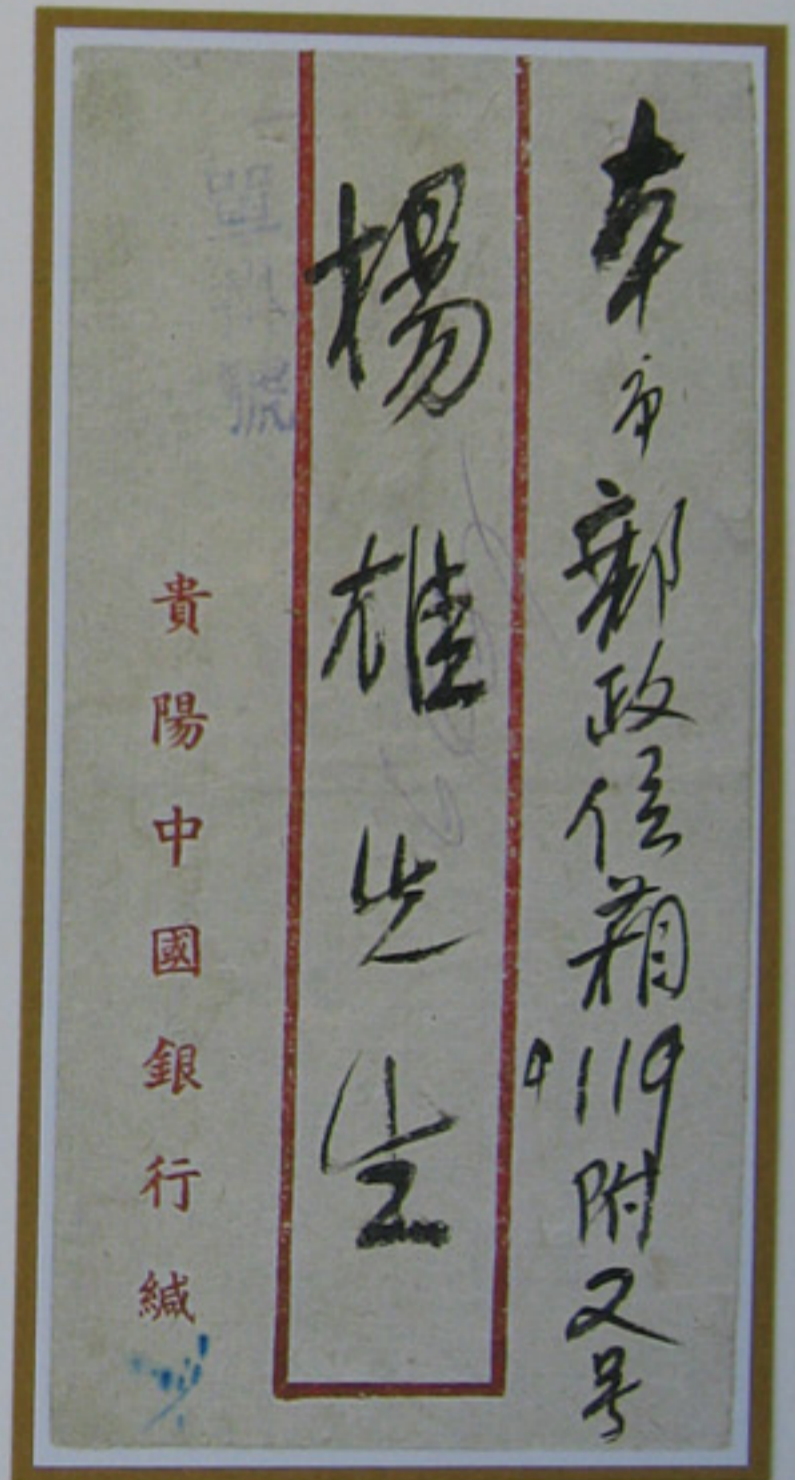 本市郵政信箱119附又号
楊雄先生
單掛號
貴陽中國銀行緘